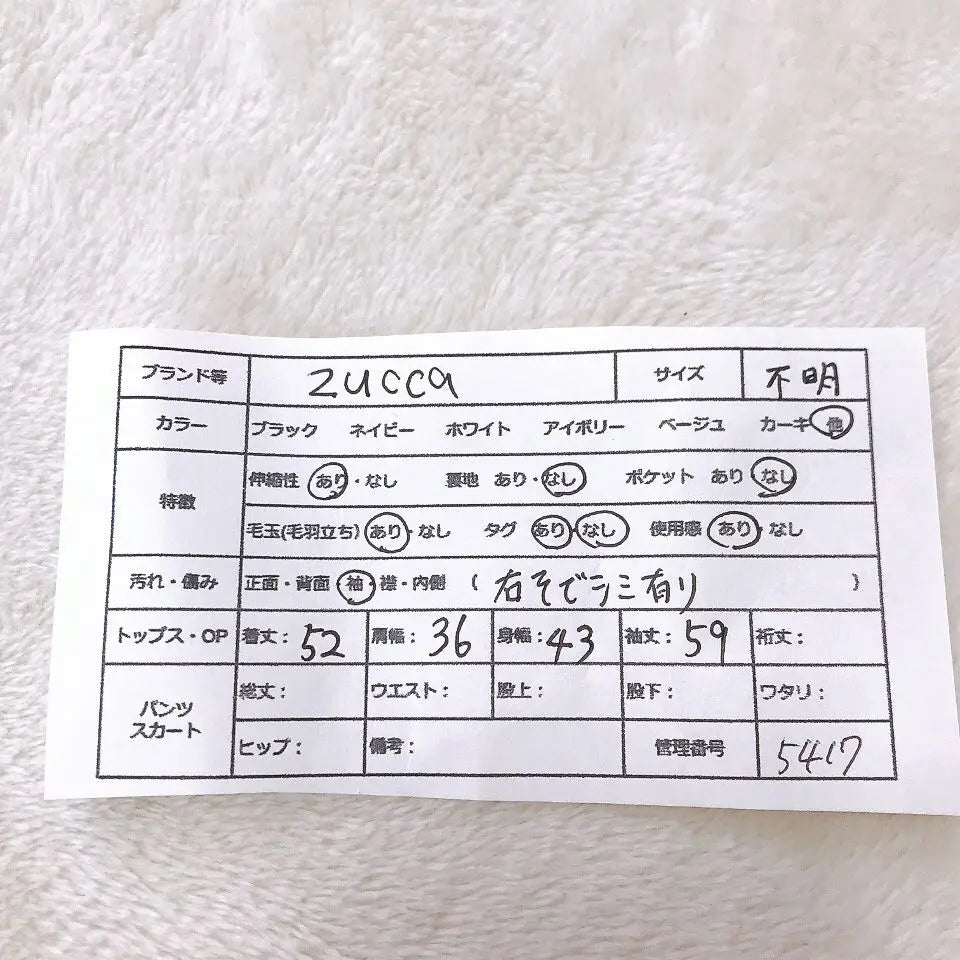 ブランド等 zucca サイズ 不明
カラー ブラック ネイビー ホワイト アイボリー ベージュ カーキ 他
特徴
伸縮性 あり・なし 裏地 あり・なし ポケット あり なし
毛玉(毛羽立ち) あり・なし タグ あり・なし 使用感 あり・なし
汚れ・傷み 正面・背面・袖・襟・内側 ( 右そでシミ有り )
トップス・OP 着丈: 52 肩幅: 36 身幅: 43 袖丈: 59 裄丈:
パンツ
スカート
総丈: ウエスト: 股上: 股下: ワタリ:
ヒップ: 備考: 管理番号 5417